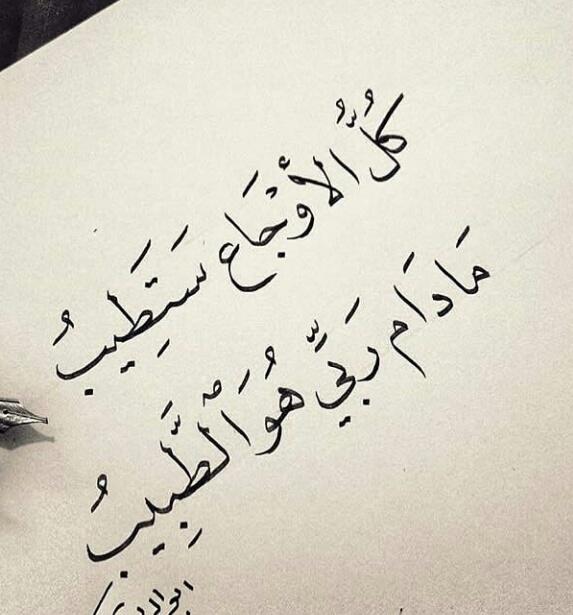 كُلُّ الأَوْجَاعِ سَتَطِيبُ
مَادَام رَبِّيَ هُوَ الْطَّبِيبُ